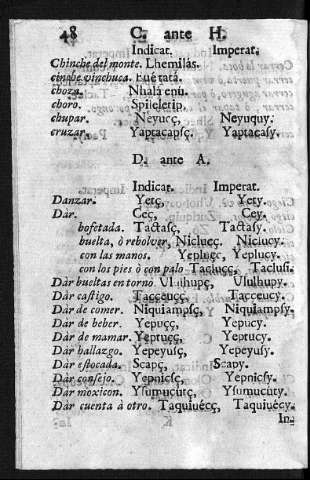 48 C. ante H.
Indicat. Imperat.
Chinche del monte. Lhemilás.
cinche vinchuca. Fuetatá.
choza. Nhalá enú.
choro. Spilelerip.
chupar. Neyucç, Neyuquy.
cruzar. Yaptacapsç. Yaptacasy.
D. ante A.
Indicat. Imperat.
Danzar. Yetç, Yety.
Dàr. Ceç, Cey.
bofetada. Tactasç, Tactasy.
buelta, ò rebolver, Niclucç. Niclucy.
con las manos. Yeplucç, Yeplucy.
con los pies ò con palo Taclucç, Taclusi.
Dàr bueltas en torno. Ulsuhupç, Ulsulhupy.
Dàr castigo. Tacceucç. Tacceucy.
Dàr de comer. Niquiampsç, Niquiampsy.
Dàr de beber. Yepuçç, Yepucy.
Dàr de mamar. Yeptuçç, Yeptucy.
Dàr hallazgo. Yepeyusç, Yepeyusy.
Dàr estocada. Scapç, Scapy.
Dàr consejo. Yepnicsç, Yepnicsy.
Dàr moxicon. Ysumucùtç, Ysumucùty.
Dàr cuenta à otro. Taquiuécç, Taquiuécy.
In-